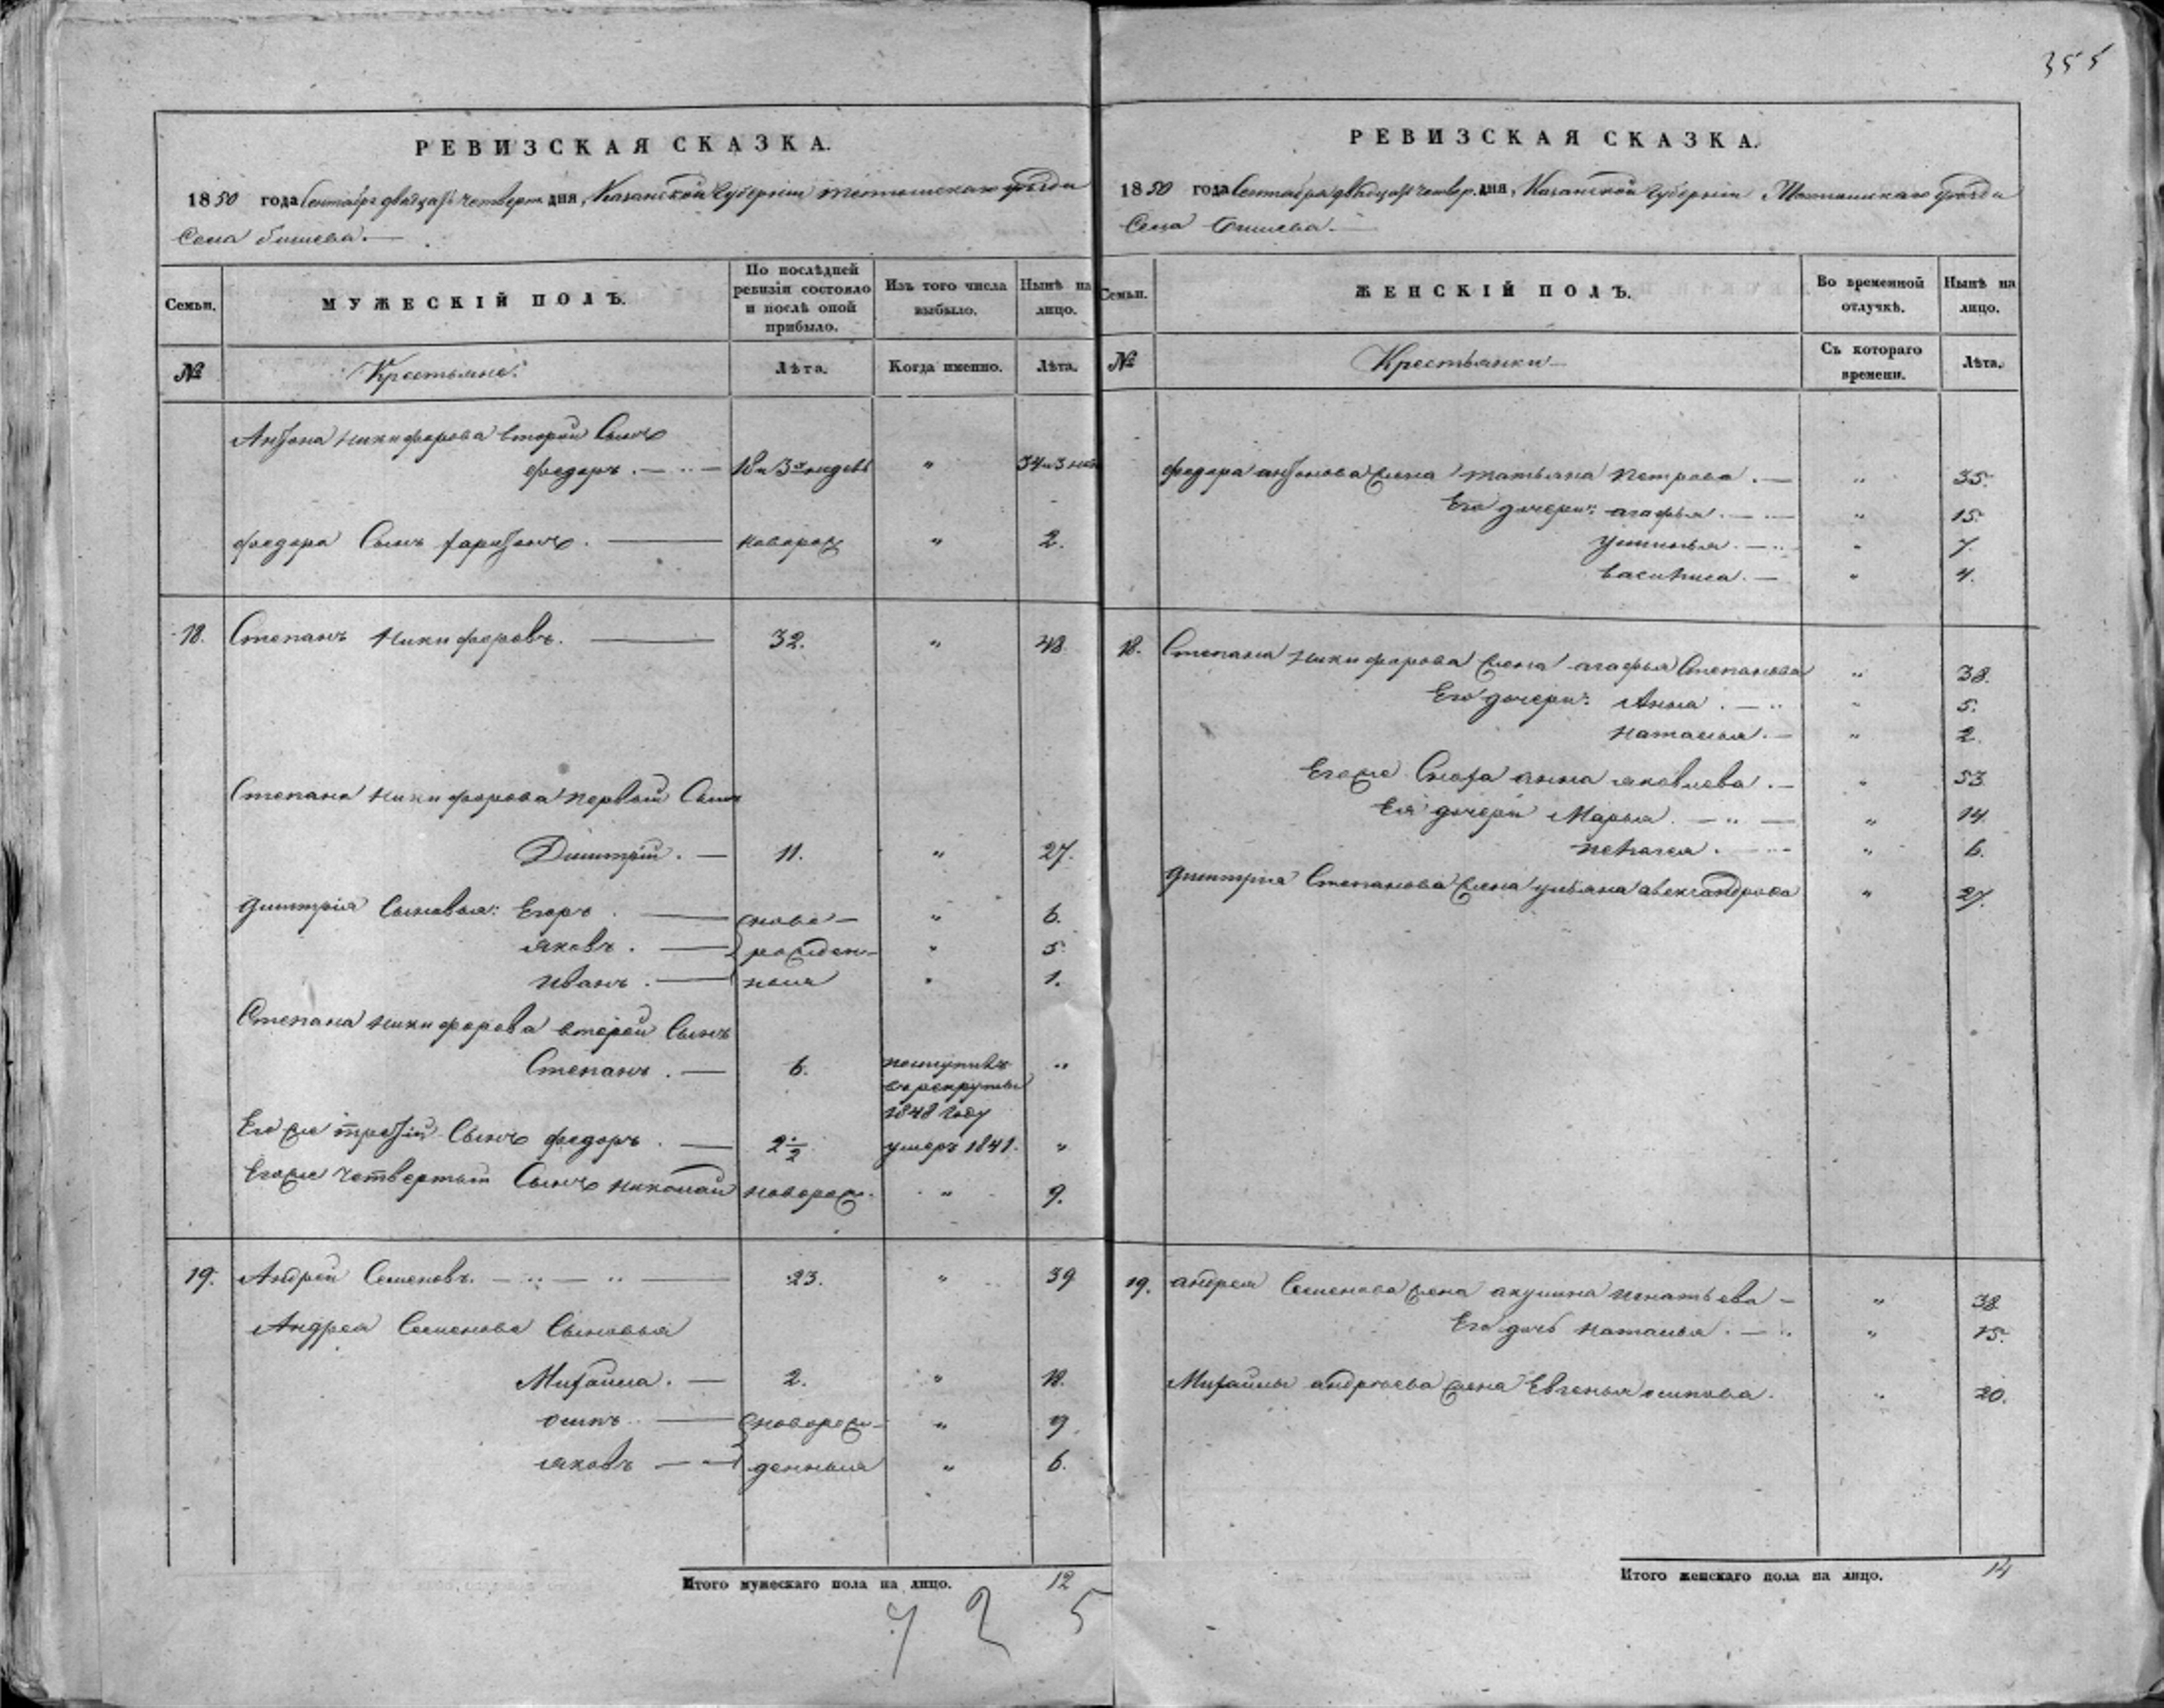 355
РЕВИЗСКАЯ СКАЗКА.
1850 года Сентября двадцать четверт. дня, Казанской Губернии Тетюшскаго уѣзда
Села
Семьи.
МУЖЕСКІЙ ПОЛЪ.
По послѣдней ревизіи состояло и послѣ оной прибыло.
Изъ того числа выбыло.
Нынѣ на лицо.
№
Крестьяне:
Лѣта.
Когда именно.
Лѣта.
Антона Никифорова второй Сынъ
Федоръ. — 18 и 3х недель " 34 и 3 нед
Федора Сынъ Харитонъ. — новорож " 2.
18. Степанъ Никифоровъ. — 32. " 48
Степана Никифорова первый Сынъ
Димитрій. — 11. " 27.
Димитрія Сыновья: Егоръ. — ново- " 6.
Яковъ. — рожден- " 5.
Иванъ. — ныя " 1.
Степана Никифорова второй Сынъ
Степанъ. — 6. поступилъ "
въ рекруты
1848 году
Его же третій Сынъ Федоръ. — 2 1/2 умеръ 1841. "
Его же четвертый Сынъ Николай новорож. " 9.
19. Андрей Семеновъ. — 23. " 39
Андрея Семенова Сыновья
Михайла. — 2. " 18.
Осипъ — новорож- " 9.
Яковъ — денныя " 6.
Итого мужескаго пола на лицо. 12
7 2 5
РЕВИЗСКАЯ СКАЗКА.
1850 года Сентября двадцать четвер. дня, Казанской Губерніи Тетюшскаго уѣзда
Села
Семьи.
ЖЕНСКІЙ ПОЛЪ.
Во временной отлучкѣ.
Нынѣ на лицо.
№
Крестьянки
Съ котораго времени.
Лѣта.
Федора Антонова жена Татьяна Петрова. — " 35.
Его дочери: Агафья. — " 15.
Устинья. — " 7.
Василиса. — " 4.
18. Степана Никифорова жена Агафья Степанова " 38.
Его дочери: Анна. — " 5.
Наталья. — " 2.
Его же Сноха Анна Яковлева. — " 53
Ея дочери Марья. — " 14.
Пелагея. — " 6.
Димитрія Степанова жена Ульяна Александрова " 27.
19. Андрея Семенова жена Акулина Игнатьева — " 38
Его дочь Наталья. — " 15.
Михайлы Андреева жена Евгенья Осипова. " 20.
Итого женскаго пола на лицо. 14